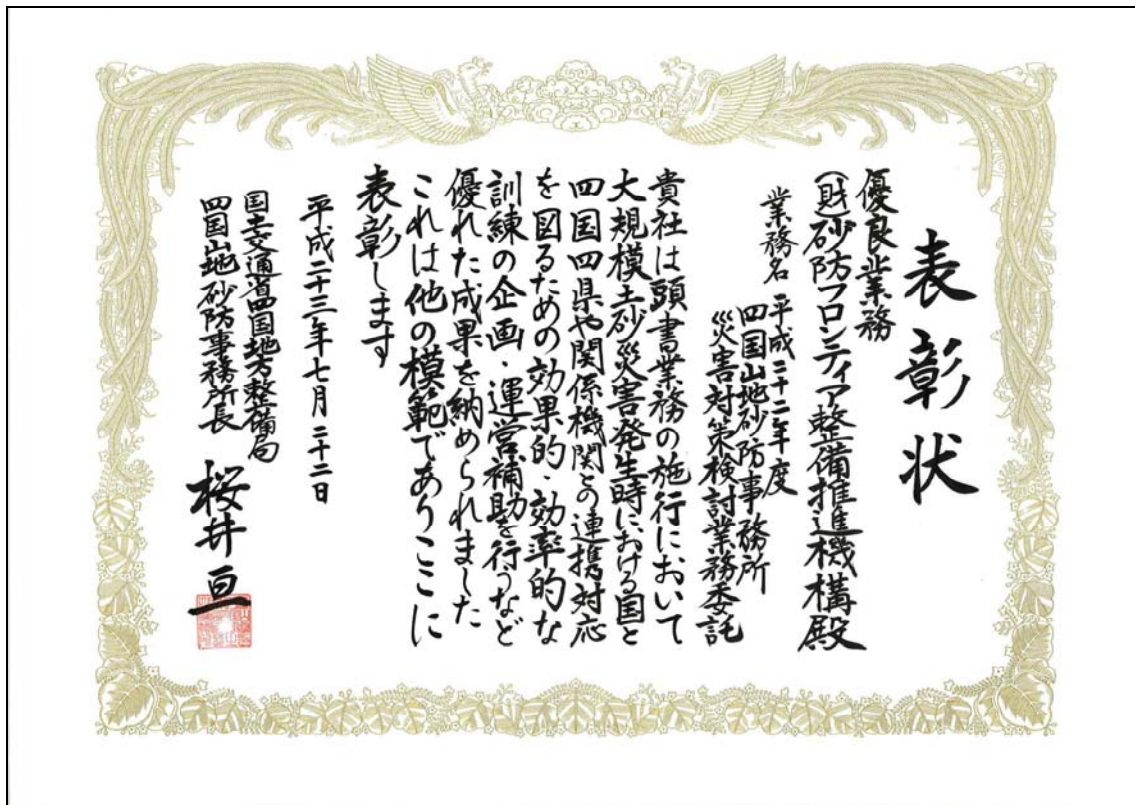 表彰状
優良業務
(財)砂防フロンティア整備推進機構殿
業務名 平成二十二年度
四国山地砂防事務所
災害対策検討業務委託
貴社は頭書業務の施行において
大規模土砂災害発生時における国と
四国四県や関係機関との連携対応
を図るための効果的・効率的な
訓練の企画・運営補助を行うなど
優れた成果を納められました
これは他の模範でありここに
表彰します
平成二十三年七月二十二日
国土交通省四国地方整備局
四国山地砂防事務所長 桜井亘